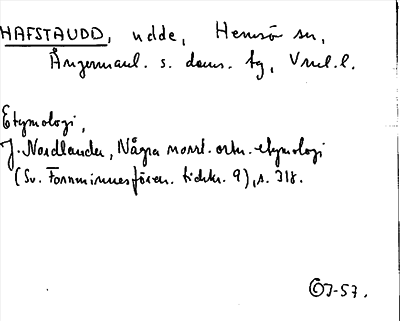 HAFSTAUDD, udde, Hemsö sn,
Ångermanl. s. doms. tg, Vnl. l.
Etymologi,
J. Nordlander, Några norrl. ortn. etymologi
(Sv. Fornminnesfören. tidskr. 9), s. 318.
ÖJ-57.